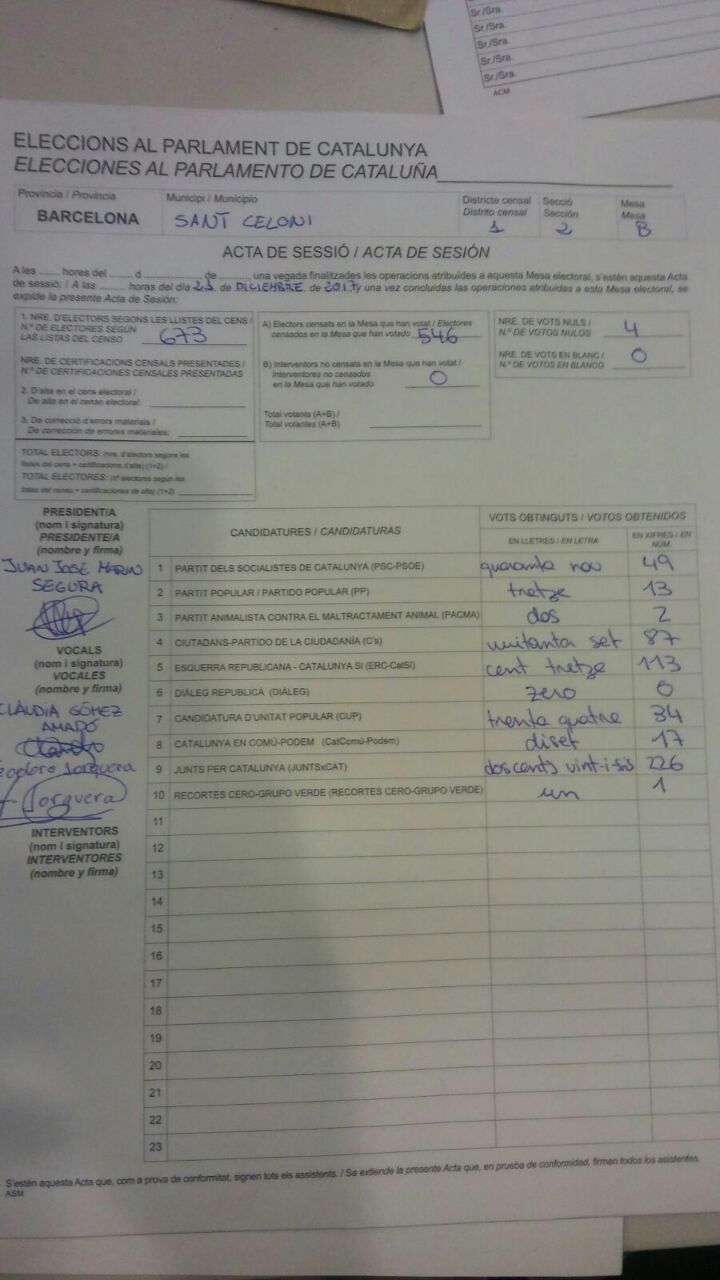 Sr./Sra.
Sr./Sra.
Sr./Sra.
Sr./Sra.
Sr./Sra.
ACM
ELECCIONS AL PARLAMENT DE CATALUNYA
ELECCIONES AL PARLAMENTO DE CATALUÑA
Província / Provincia
BARCELONA
Municipi / Municipio
SANT CELONI
Districte censal
Distrito censal
1
Secció
Sección
2
Mesa
Mesa
B
ACTA DE SESSIÓ / ACTA DE SESIÓN
A les ........ hores del ........ d ........ de ........ una vegada finalitzades les operacions atribuïdes a aquesta Mesa electoral, s'estén aquesta Acta
de sessió: / A las ........ horas del día 21 de DICIEMBRE de 2017 y una vez concluidas las operaciones atribuidas a esta Mesa electoral, se
expide la presente Acta de Sesión:
1. NRE. D'ELECTORS SEGONS LES LLISTES DEL CENS /
N.º DE ELECTORES SEGÚN
LAS LISTAS DEL CENSO 673
NRE. DE CERTIFICACIONS CENSALS PRESENTADES /
N.º DE CERTIFICACIONES CENSALES PRESENTADAS
2. D'alta en el cens electoral /
De alta en el censo electoral:
3. De correcció d'errors materials /
De corrección de errores materiales:
TOTAL ELECTORS: (nre. d'electors segons les
llistes del cens + certificacions d'alta) (1+2) /
TOTAL ELECTORES: (nº electores según las
listas del censo + certificaciones de alta) (1+2)
A) Electors censats en la Mesa que han votat / Electores
censados en la Mesa que han votado 546
B) Interventors no censats en la Mesa que han votat /
Interventores no censados
en la Mesa que han votado 0
Total votants (A+B) /
Total votantes (A+B)
NRE. DE VOTS NULS /
N.º DE VOTOS NULOS 4
NRE. DE VOTS EN BLANC /
N.º DE VOTOS EN BLANCO 0
PRESIDENT/A
(nom i signatura)
PRESIDENTE/A
(nombre y firma)
JUAN JOSE MARIN
SEGURA
VOCALS
(nom i signatura)
VOCALES
(nombre y firma)
CLAUDIA GÓMEZ
AMADÓ
Teodoro Jorquera
Jorquera
INTERVENTORS
(nom i signatura)
INTERVENTORES
(nombre y firma)
CANDIDATURES / CANDIDATURAS
VOTS OBTINGUTS / VOTOS OBTENIDOS
EN LLETRES / EN LETRA
EN XIFRES / EN NÚM.
1 PARTIT DELS SOCIALISTES DE CATALUNYA (PSC-PSOE) quaranta nou 49
2 PARTIT POPULAR / PARTIDO POPULAR (PP) tretze 13
3 PARTIT ANIMALISTA CONTRA EL MALTRACTAMENT ANIMAL (PACMA) dos 2
4 CIUTADANS-PARTIDO DE LA CIUDADANÍA (C's) vuitanta set 87
5 ESQUERRA REPUBLICANA - CATALUNYA SÍ (ERC-CatSí) cent tretze 113
6 DIÀLEG REPUBLICÀ (DIÀLEG) zero 0
7 CANDIDATURA D'UNITAT POPULAR (CUP) trenta quatre 34
8 CATALUNYA EN COMÚ-PODEM (CatComú-Podem) diset 17
9 JUNTS PER CATALUNYA (JUNTSxCAT) doscents vint-i-sis 226
10 RECORTES CERO-GRUPO VERDE (RECORTES CERO-GRUPO VERDE) un 1
11
12
13
14
15
16
17
18
19
20
21
22
23
S'estén aquesta Acta que, com a prova de conformitat, signen tots els assistents. / Se extiende la presente Acta que, en prueba de conformidad, firman todos los asistentes.
ASM